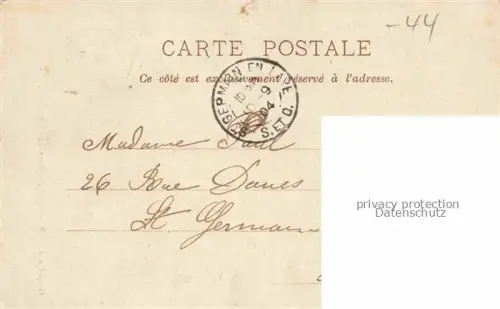 -44
CARTE POSTALE
Ce côté est exclusivement réservé à l'adresse.
ST GERMAIN EN LAYE
S. ET O.
Madame Paul
26 Rue Danes
St Germain
privacy protection
Datenschutz